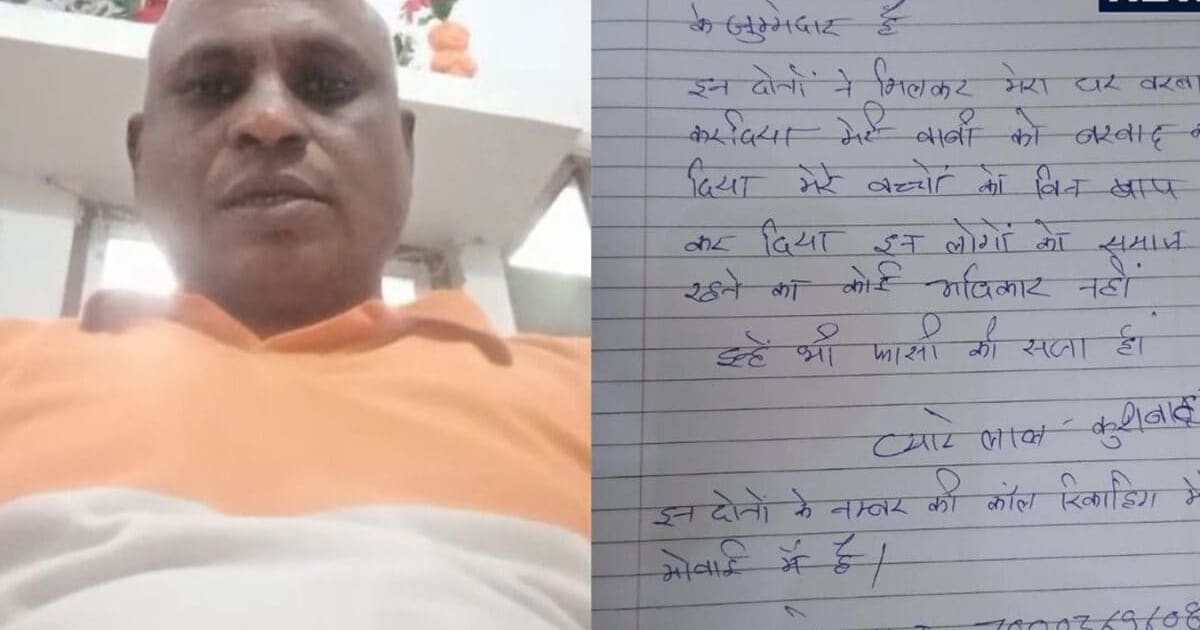 के जुम्मेदार हैं
इन दोनों ने मिलकर मेरा घर बरबा
कर दिया मेरी वानी को बरवाद
दिया मेरे बच्चों को विन बाप
कर दिया इन लोगों को समाज
रहने का कोई अधिकार नहीं
इन्हें भी फासी की सजा है।
प्यारे लाल कुशवाह
इन दोनों के नम्बर की कॉल रिकार्डिंग मे
मोवाई में है।